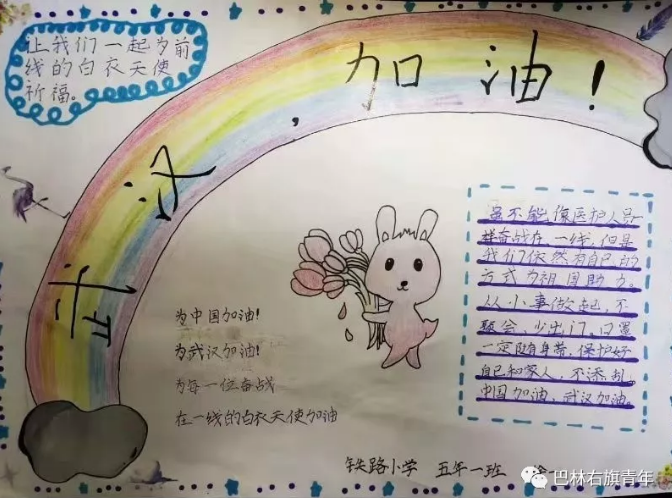 让我们一起为前
线的白衣天使
祈福。
武汉，加油！
为中国加油!
为武汉加油!
为每一位奋战
在一线的白衣天使加油
虽不能像医护人员一
样奋战在一线，但是
我们依然有自己的
方式为祖国助力。
从小事做起，不
聚会，少出门。口罩
一定随身带，保护好
自己和家人，不添乱。
中国加油，武汉加油。
铁路小学 五年一班
巴林右旗青年